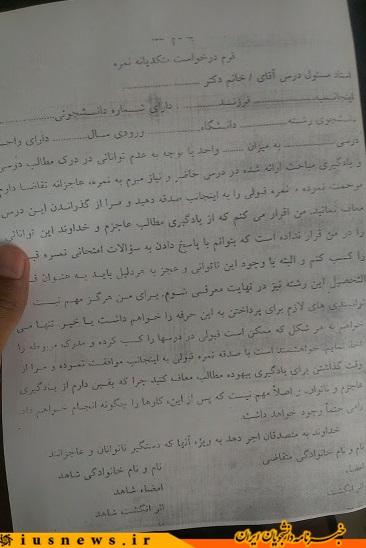 فرم درخواست متکدیانه نمره
استاد مسئول درس آقای / خانم دکتر
اینجانب فرزند دارای شماره دانشجوئی
دانشجوی رشته دانشگاه ورودی سال دارای واحد
درسی به میزان واحد با توجه به عدم توانائی در درک مطالب درسی
و یادگیری مباحث ارائه شده در درس حاضر و نیاز مبرم به نمره، عاجزانه تقاضا دارم
مرحمت نموده و نمره قبولی را به اینجانب صدقه دهید و مرا از گذراندن این درس
معاف نمائید. من اقرار می کنم که از یادگیری مطالب عاجزم و خداوند این توانائی
را در من قرار نداده است که بتوانم با پاسخ دادن به سؤالات امتحانی نمره
را کسب کنم و البته با وجود این ناتوانی و عجز به هر دلیل باید به عنوان
التحصیل این رشته نیز در نهایت معرفی شوم. برای من هرگز مهم نیست
توانمندی های لازم برای پرداختن به این حرفه را خواهم داشت یا خیر. تنها می
خواهم به هر شکل که ممکن است قبولی در درسها را کسب کرده و مدرک مربوطه را
اخذ نمایم. خواهشمند است با صدقه نمره قبولی به اینجانب موافقت نموده و مرا از
وقت گذاشتن برای یادگیری بیهوده مطالب معاف کنید چرا که یقین دارم از یادگیری
عاجزم و ناتوان. اصلاً مهم نیست که پس از این، کارها را چگونه انجام خواهم داد.
راهی حتماً وجود خواهد داشت.
خداوند به متصدقان اجر دهد به ویژه آنها که دستگیر ناتوانان و عاجزانند
نام و نام خانوادگی متقاضی
نام و نام خانوادگی شاهد
امضاء
امضاء شاهد
اثر انگشت
اثر انگشت شاهد
خبرنامه دانشجویان ایران
iusnews.ir